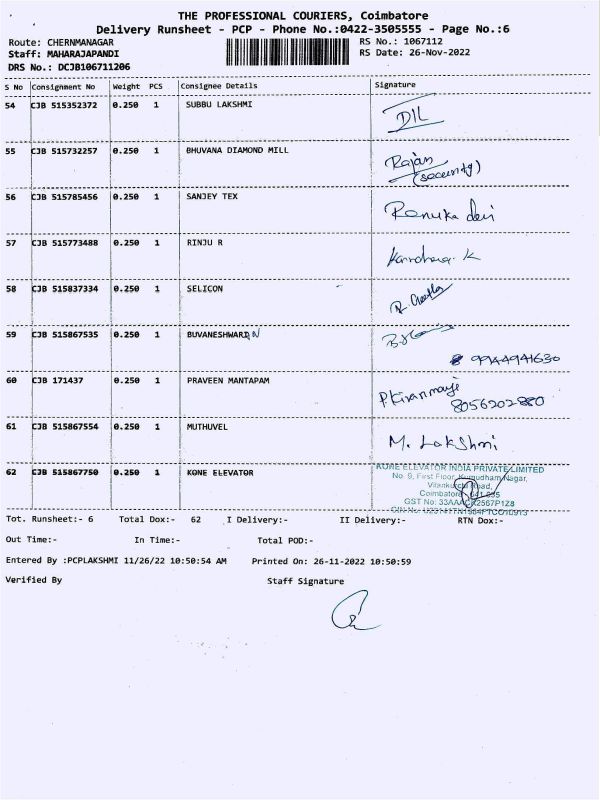 THE PROFESSIONAL COURIERS, Coimbatore
Delivery Runsheet - PCP - Phone No.:0422-3505555 - Page No.:6
Route: CHERNMANAGAR RS No.: 1067112
Staff: MAHARAJAPANDI RS Date: 26-Nov-2022
DRS No.: DCJB106711206
S No Consignment No Weight PCS Consignee Details Signature
54 CJB 515352372 0.250 1 SUBBU LAKSHMI
55 CJB 515732257 0.250 1 BHUVANA DIAMOND MILL Rajan
(security)
56 CJB 515785456 0.250 1 SANJEY TEX Renuka devi
57 CJB 515773488 0.250 1 RINJU R
58 CJB 515837334 0.250 1 SELICON
59 CJB 515867535 0.250 1 BUVANESHWARI N
9944941630
60 CJB 171437 0.250 1 PRAVEEN MANTAPAM
8056202880
61 CJB 515867554 0.250 1 MUTHUVEL M. Lakshmi
62 CJB 515867750 0.250 1 KONE ELEVATOR KONE ELEVATOR INDIA PRIVATE LIMITED
No. 9, First Floor, Kumudham Nagar,
Vilankurchi Road,
Coimbatore - 641 035
Tot. Runsheet:- 6 Total Dox:- 62 I Delivery:- II Delivery:- RTN Dox:-
Out Time:- In Time:- Total POD:-
Entered By :PCPLAKSHMI 11/26/22 10:50:54 AM Printed On: 26-11-2022 10:50:59
Verified By Staff Signature